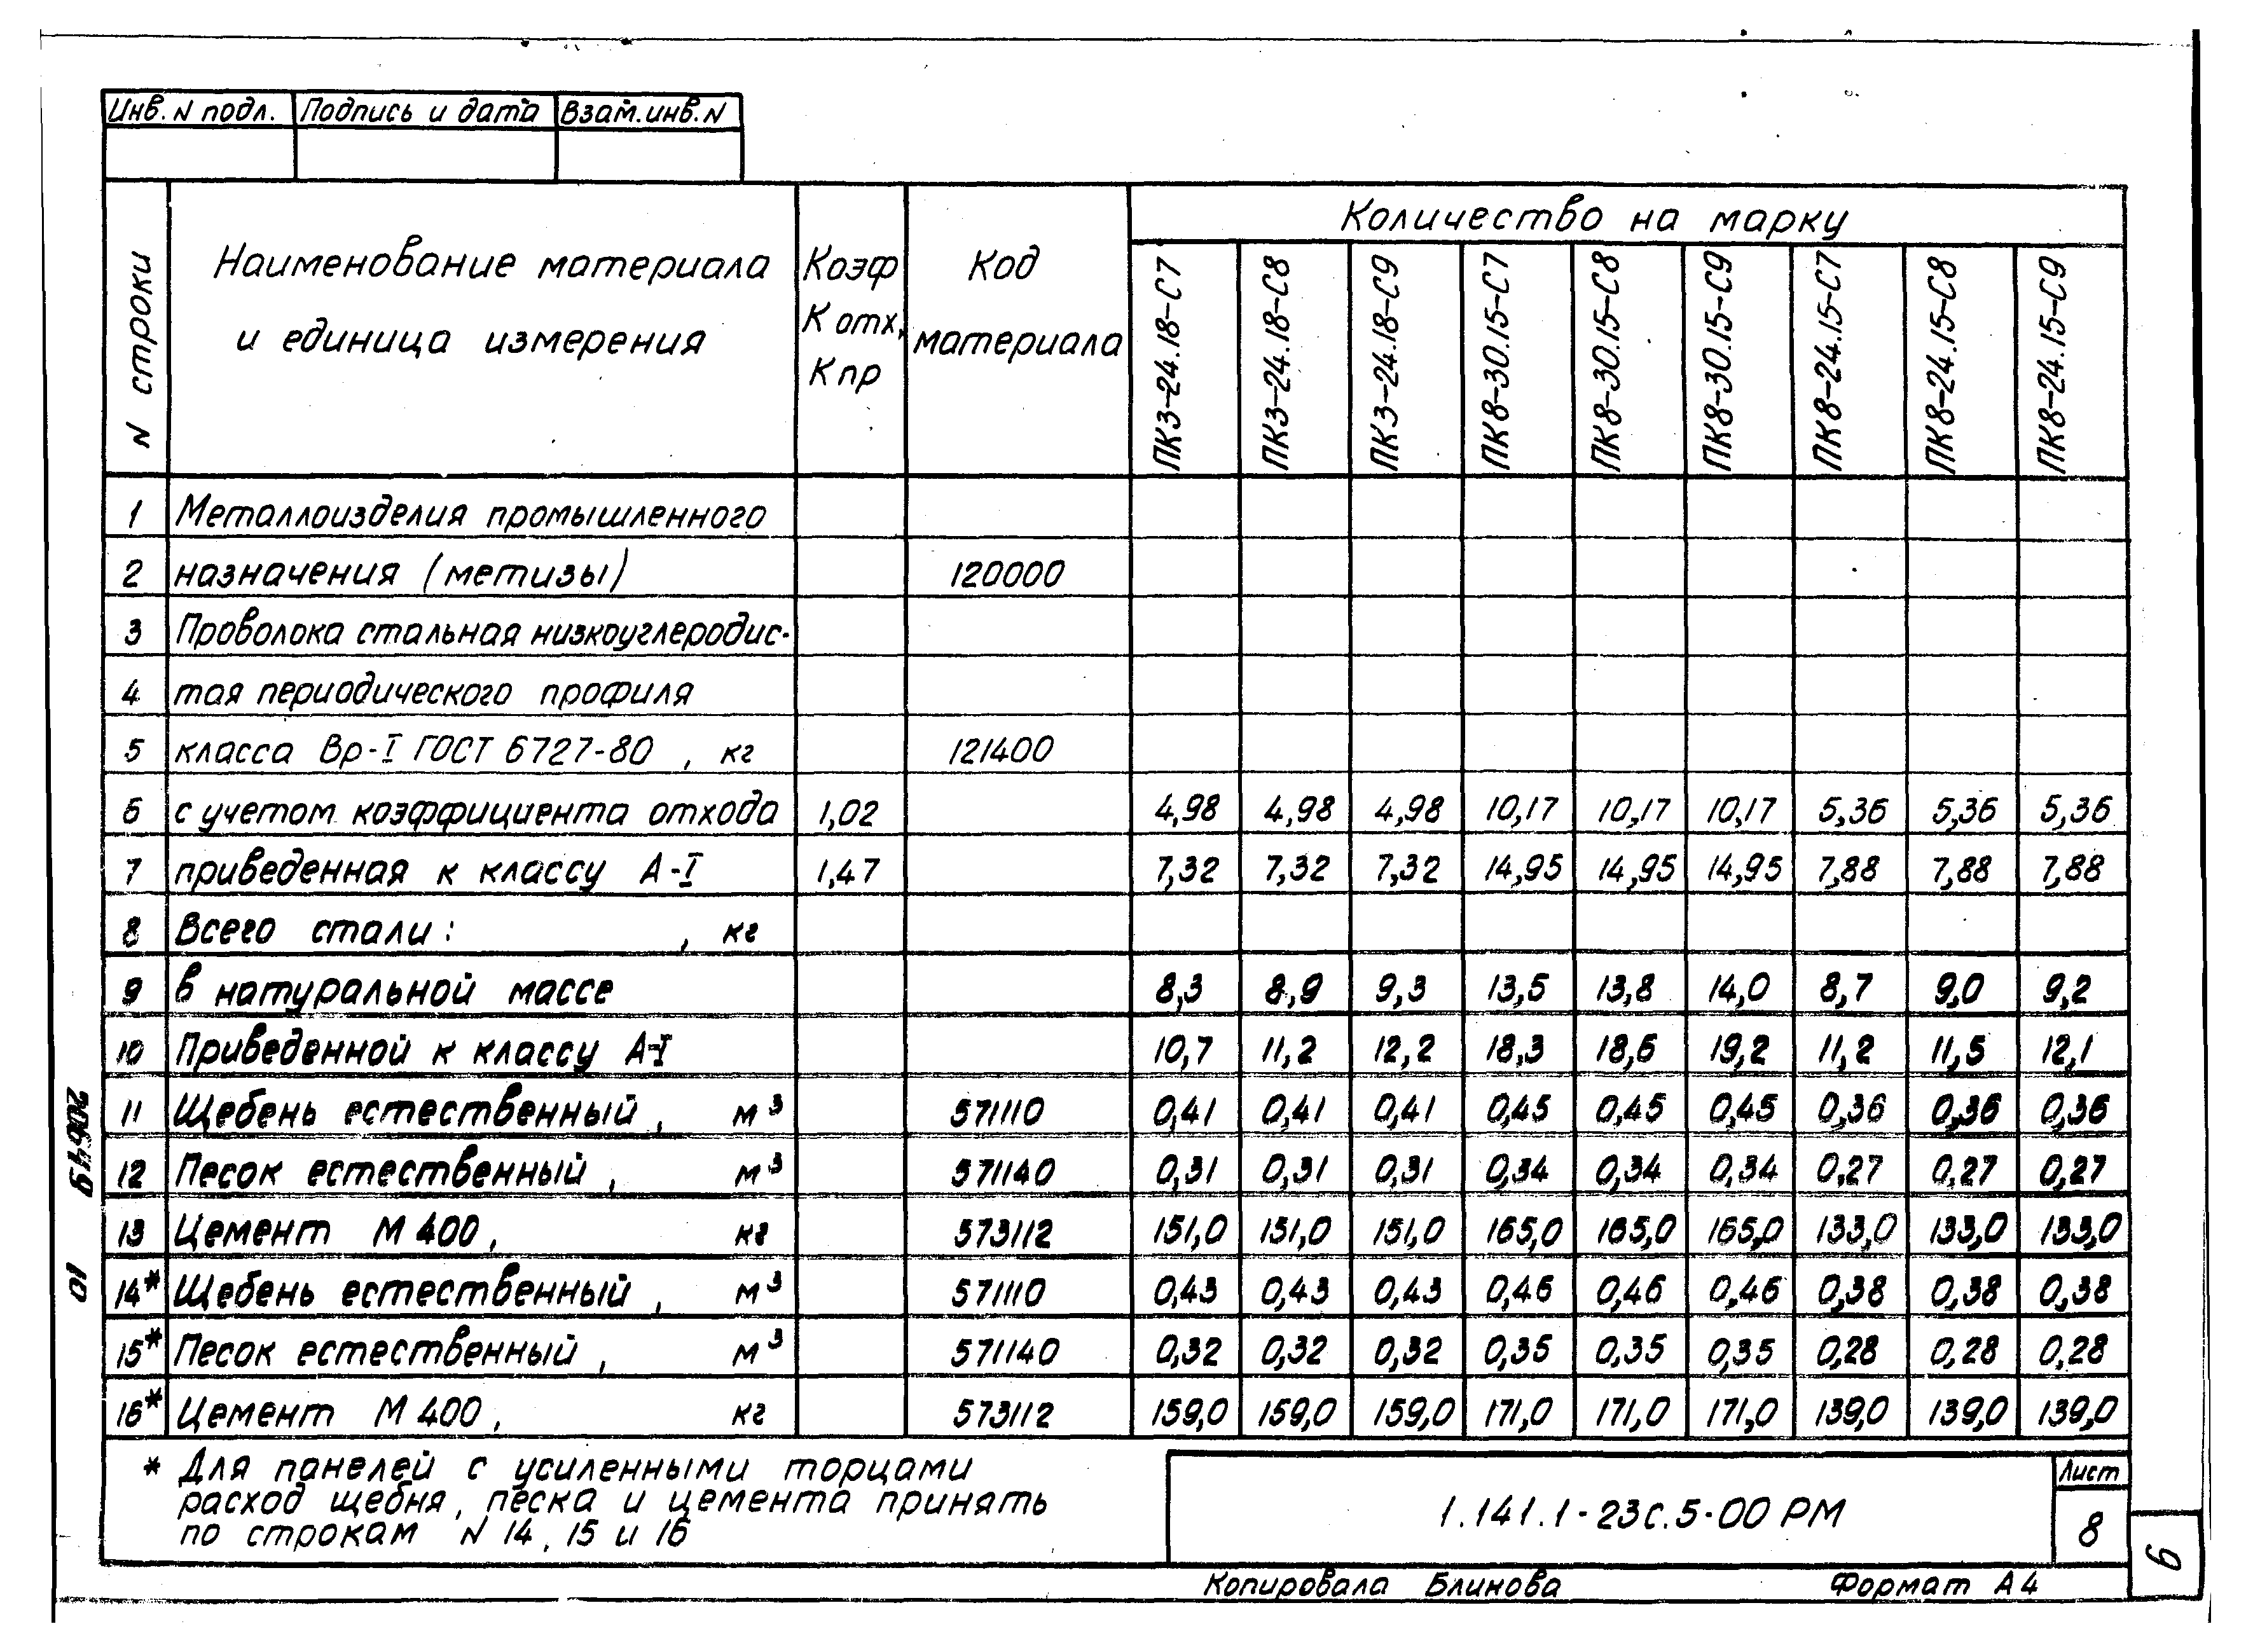 Инв. N подл. Подпись и дата Взам.инв.N
N строки
Наименование материала
и единица измерения
Коэф
К отх,
К пр
Код
материала
Количество на марку
ПК3-24.18-С7 ПК3-24.18-С8 ПК3-24.18-С9 ПК8-30.15-С7 ПК8-30.15-С8 ПК8-30.15-С9 ПК8-24.15-С7 ПК8-24.15-С8 ПК8-24.15-С9
1 Металлоизделия промышленного
2 назначения (метизы) 120000
3 Проволока стальная низкоуглеродис-
4 тая периодического профиля
5 класса Вр-I ГОСТ 6727-80 , кг 121400
6 с учетом коэффициента отхода 1,02 4,98 4,98 4,98 10,17 10,17 10,17 5,36 5,36 5,36
7 приведенная к классу А-I 1,47 7,32 7,32 7,32 14,95 14,95 14,95 7,88 7,88 7,88
8 Всего стали: , кг
9 в натуральной массе 8,3 8,9 9,3 13,5 13,8 14,0 8,7 9,0 9,2
10 Приведенной к классу А-I 10,7 11,2 12,2 18,3 18,6 19,2 11,2 11,5 12,1
11 Щебень естественный , м³ 571110 0,41 0,41 0,41 0,45 0,45 0,45 0,36 0,36 0,36
12 Песок естественный , м³ 571140 0,31 0,31 0,31 0,34 0,34 0,34 0,27 0,27 0,27
13 Цемент М 400, кг 573112 151,0 151,0 151,0 165,0 165,0 165,0 133,0 133,0 133,0
14* Щебень естественный , м³ 571110 0,43 0,43 0,43 0,46 0,46 0,46 0,38 0,38 0,38
15* Песок естественный , м³ 571140 0,32 0,32 0,32 0,35 0,35 0,35 0,28 0,28 0,28
16* Цемент М 400, кг 573112 159,0 159,0 159,0 171,0 171,0 171,0 139,0 139,0 139,0
* Для панелей с усиленными торцами
расход щебня, песка и цемента принять
по строкам N 14, 15 и 16
1.141.1-23с.5-00 РМ
Лист
8
9
Копировала Блинова Формат А4
10